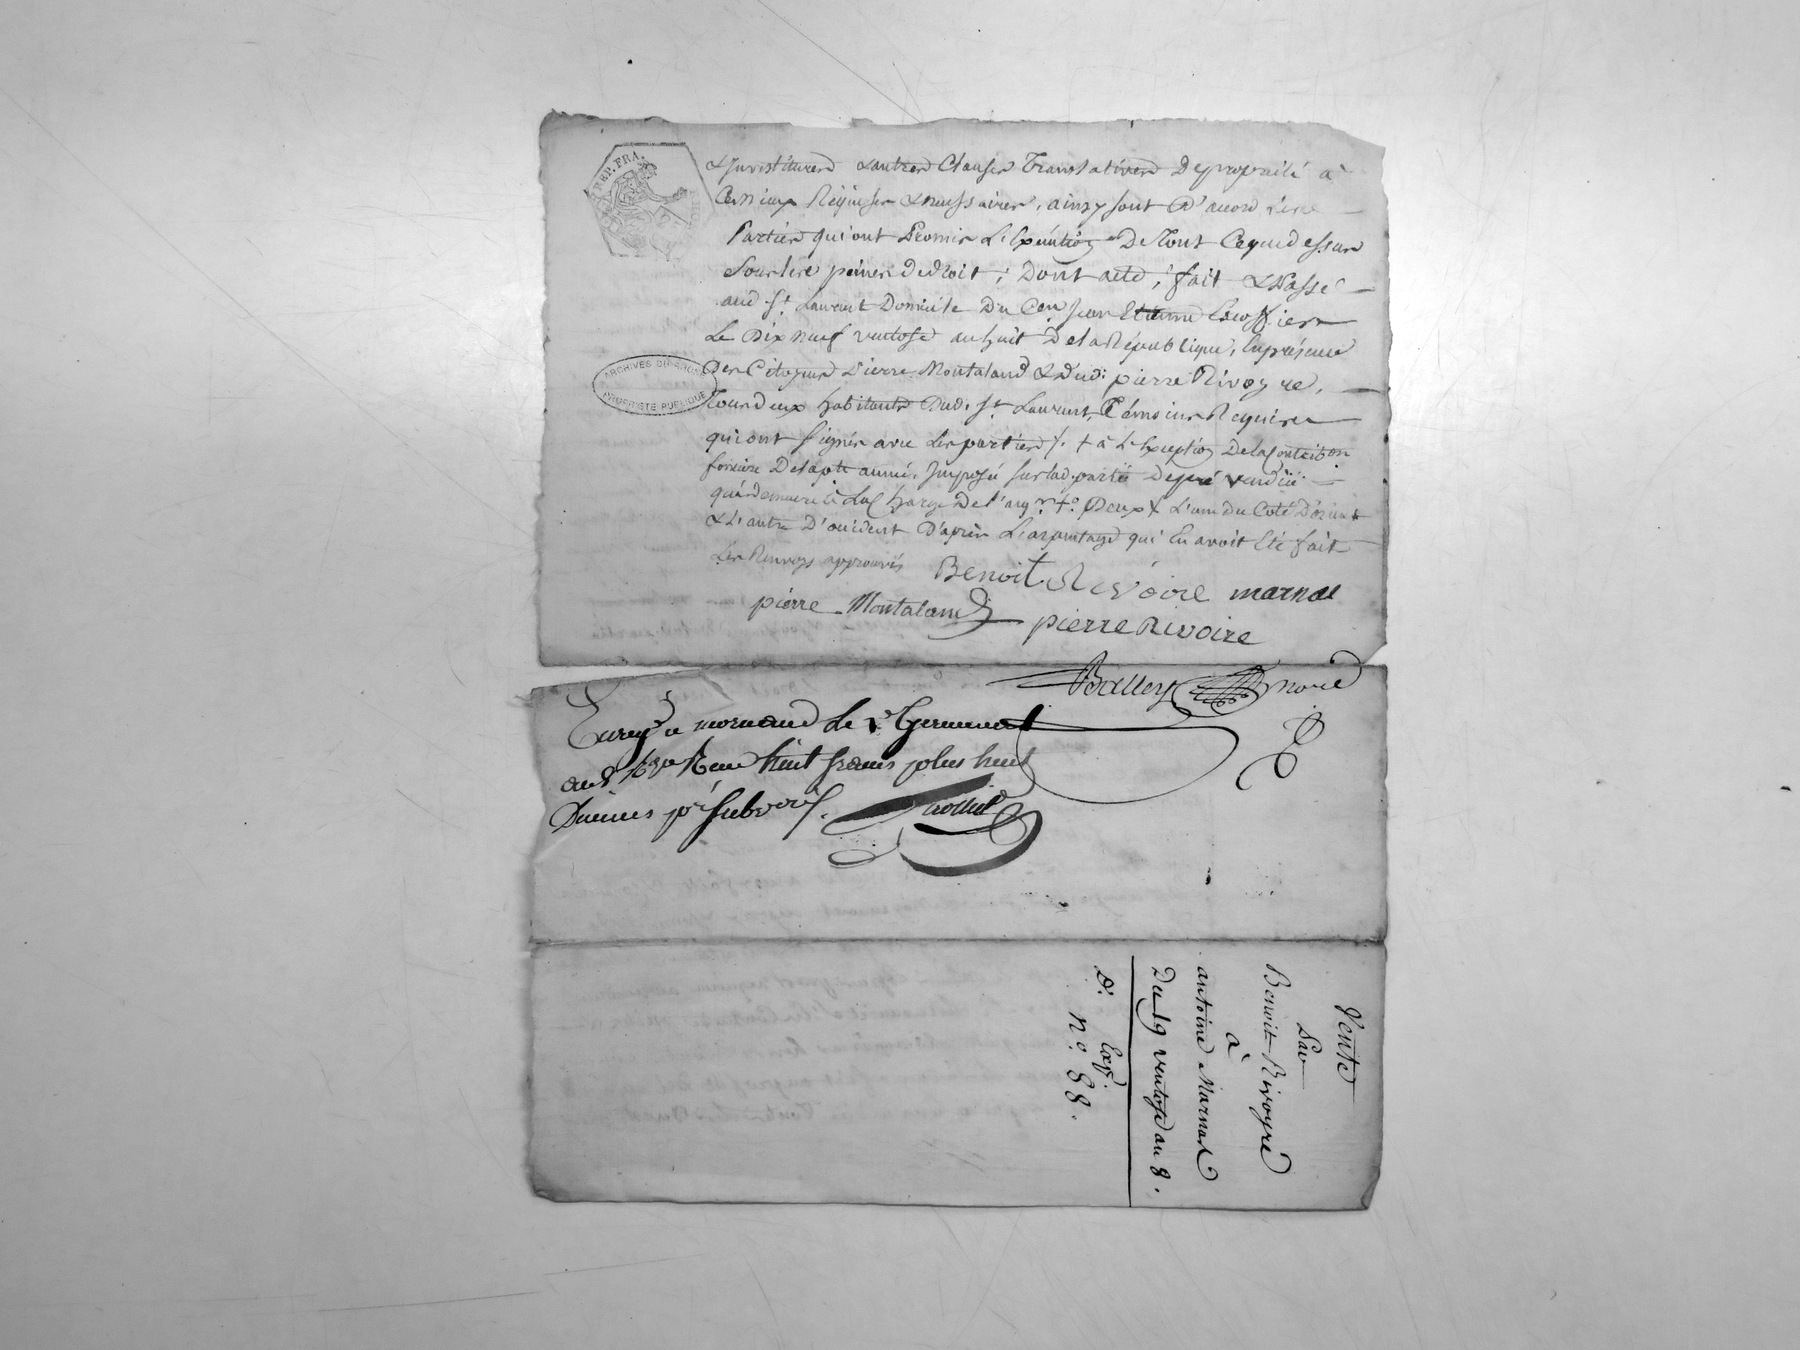 REP. FRA.
& Investitures & autres Clauses Translatives De propriété à
Ces mieux Requises & necessaires, ainsy sont D'acord Lesd
Parties qui ont Promis L'Exéution De Tout Ce que dessus
Sous les peines de droit; Dont acte, fait & Passé
aud St Laurent Domicile Du Cen Jean Etienne Escoffier
Le Dix neuf ventose an huit De la République, En présence
Des Citoyens Pierre Montaland & Dud: pierre Rivoyre,
Tous deux habitants Dud. St Laurent, Témoins Requis
qui ont Signés avec Les parties /. + à L'Exception De la Contribon
fonciere De la pte année, Imposée sur lad. partie De pré vendüe
qui demeure à la Charge De l'aqr. +o Deux X L'une du Coté D'orient
& L'autre D'occident D'après L'arpentage qui En avoit Eté fait
Les Renvoys approuvés
Benoit Rivoire marnas
pierre Montaland
pierre Rivoire
ARCHIVES DU RHONE
PROPRIETE PUBLIQUE
Balley Nore
Enregé a mornand le 1er Germinal
an 8 Reçu huit francs plus huit
Dixiemes pr Subvon.
Vente
Par
Benoit Rivoyre
à
antoine Marnas
Du 19 ventose an 8.
Exp.
no. 88.